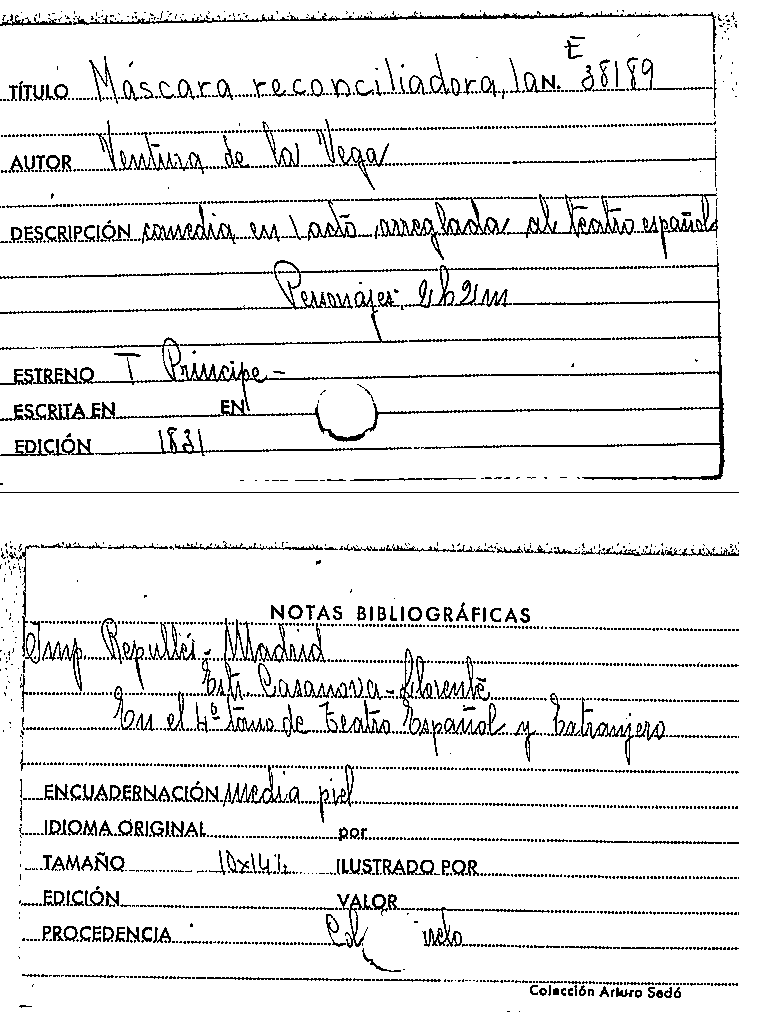 TÍTULO Máscara reconciliadora, la N. E 38189
AUTOR Ventura de la Vega
DESCRIPCIÓN comedia en 1 acto arreglada al teatro español
Personajes: 2h 2m
ESTRENO T Príncipe -
ESCRITA EN EN
EDICIÓN 1831
NOTAS BIBLIOGRÁFICAS
Imp. Repullés - Madrid
Casanova - Llorente
En el 4º tomo de Teatro Español y Extranjero
ENCUADERNACIÓN media piel
IDIOMA ORIGINAL por
TAMAÑO 10x14½ ILUSTRADO POR
EDICIÓN VALOR
PROCEDENCIA
Colección Arturo Sedó